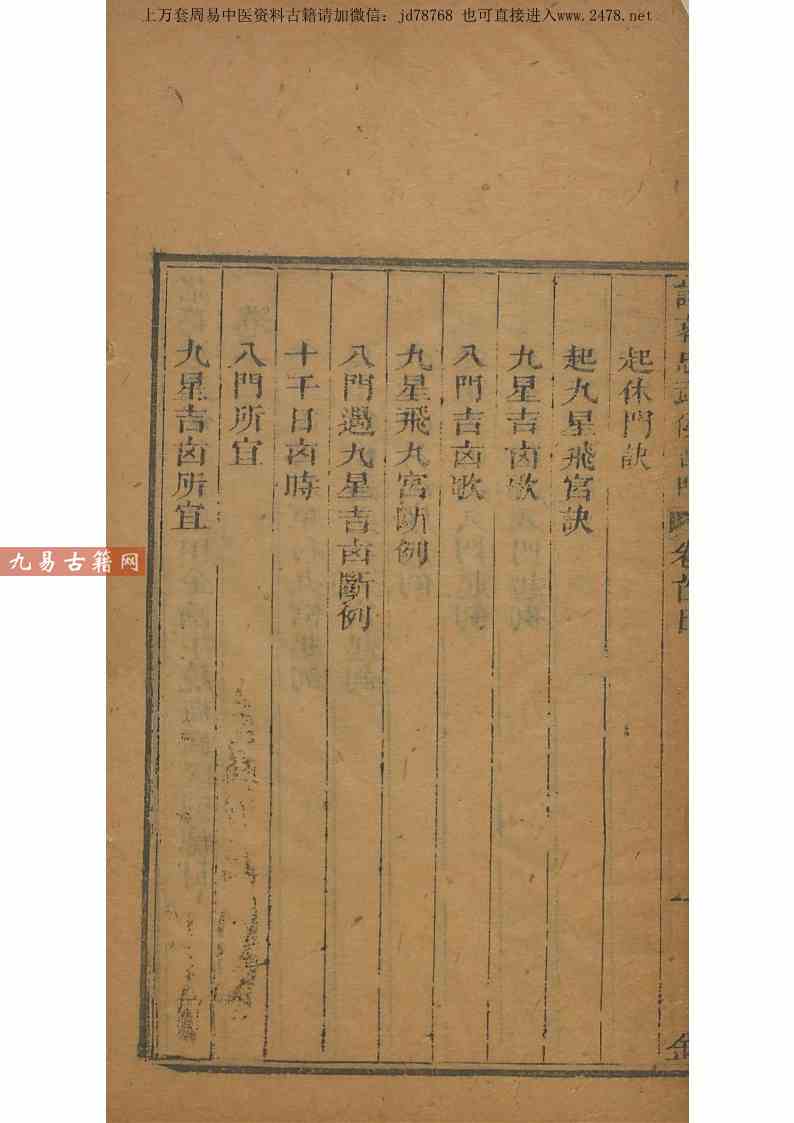 上万套周易中医资料古籍请加微信：jd78768 也可直接进入www.2478.net
卷首目
一
起休門訣
起九星飛宮訣
九星吉卤歌
八門吉卤歌
九星飛九宮斷例
八門遇九星吉卤斷例
十干日卤時
八門所宜
九星吉卤所宜
九易古籍网